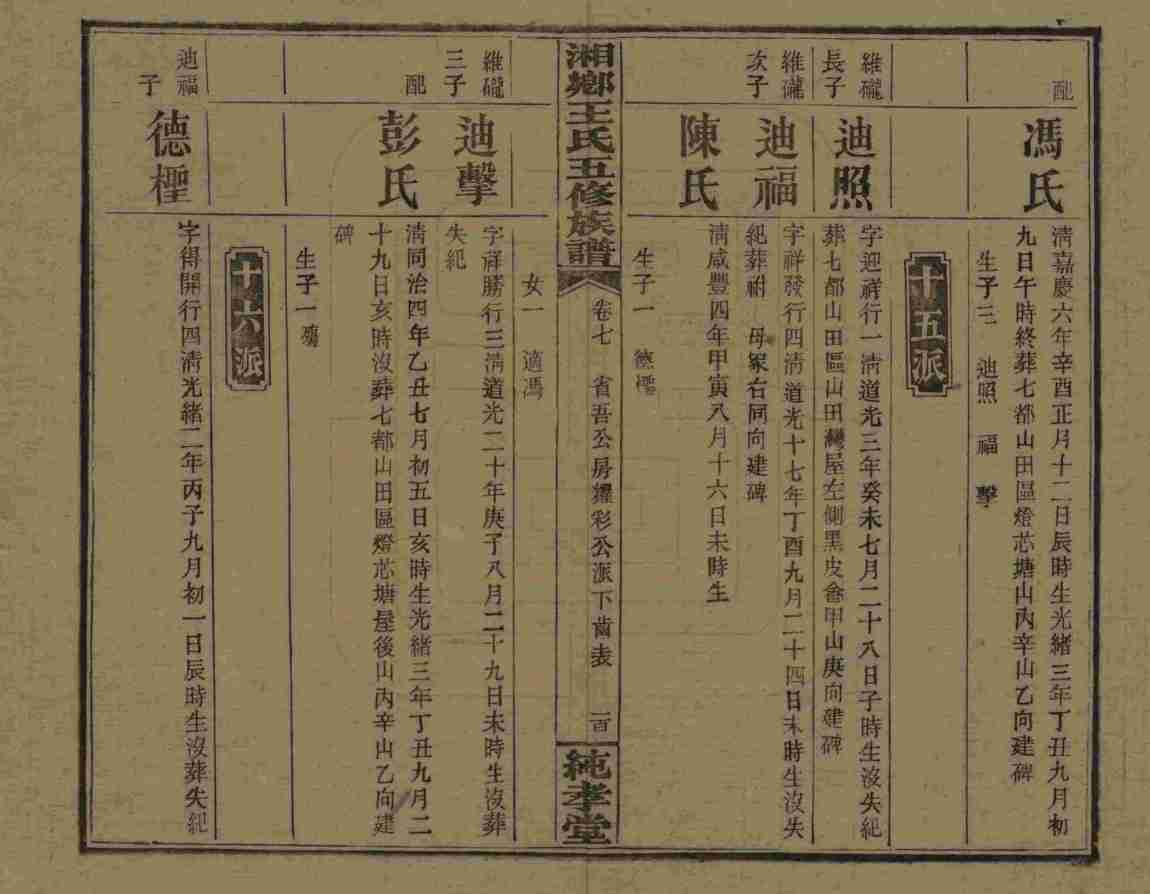 配
馮氏
清嘉慶六年辛酉正月十二日辰時生光緒三年丁丑九月初
九日午時終葬七都山田區燈芯塘山內辛山乙向建碑
生子三 迪照 福 擊
十五派
維礲
長子
迪照
字迎祥行一清道光三年癸未七月二十八日子時生沒失紀
葬七都山田區山田灣屋左側黑皮㑒甲山庚向建碑
維礲
次子
迪福
字祥發行四清道光十七年丁酉九月二十四日未時生沒失
紀葬祔 母冢右同向建碑
陳氏
清咸豐四年甲寅八月十六日未時生
生子一 德檉
湘鄉王氏五修族譜
卷七 省吾公房耀彩公派下齒表 一百
純孝堂
女一 適馮
維礲
三子
迪擊
字祥勝行三清道光二十年庚子八月二十九日未時生沒葬
失紀
配
彭氏
清同治四年乙丑七月初五日亥時生光緒三年丁丑九月二
十九日亥時沒葬七都山田區燈芯塘屋後山內辛山乙向建
碑
生子一 殤
十六派
迪福
子
德檉
字得開行四清光緒二年丙子九月初一日辰時生沒葬失紀